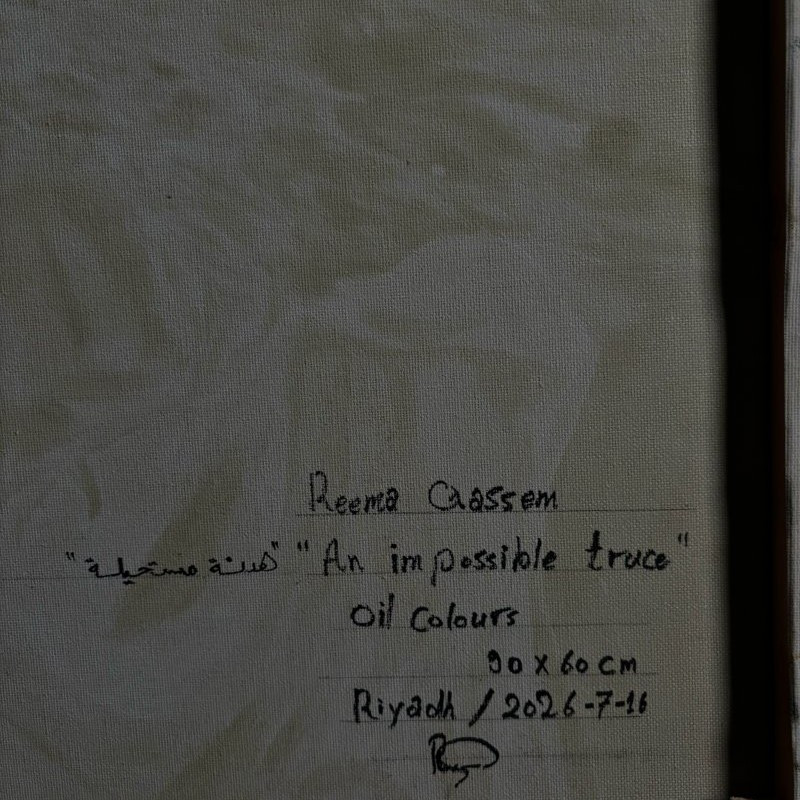 Reema Qaassem
"هدنة مستحيلة" "An impossible truce"
Oil Colours
90 x 60 cm
Riyadh / 2026-7-16